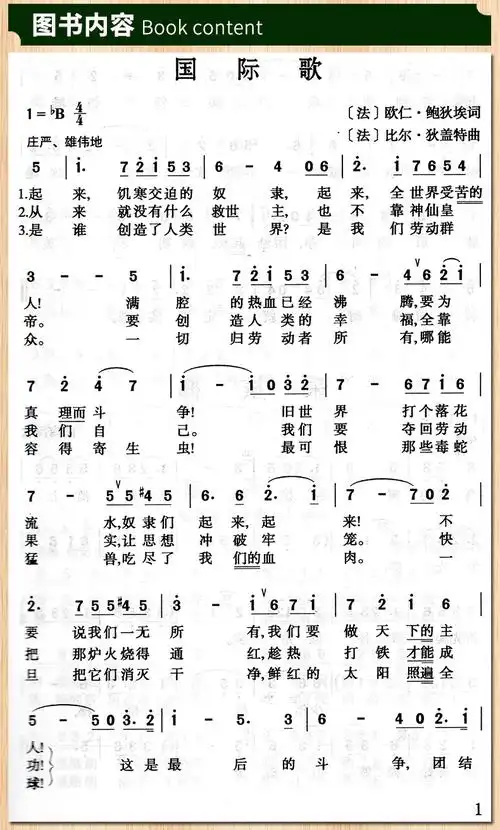 图书内容 Book content
国际歌
1=♭B 4/4
〔法〕欧仁·鲍狄埃词
庄严、雄伟地
〔法〕比尔·狄盖特曲
5 | 1. 7 2 1 5 3 | 6 - 4 0 6 | 2. 1 7 6 5 4 |
1.起 来, 饥寒交迫的 奴 隶, 起 来, 全世界受苦的
2.从 来 就没有什么 救世 主, 也 不 靠神仙皇
3.是 谁 创造了人类 世 界? 是 我 们劳动群
3 - - 5 | 1. 7 2 1 5 3 | 6 - ∨ 4 6 2 1 |
人! 满 腔 的热血已经 沸 腾,要为
帝。 要 创 造人类的 幸 福,全靠
众。 一 切 归劳动者 所 有,哪能
7 2 4 7 | 1 - 1 0 3 2 | 7 - 6 7 1 6 |
真 理而斗 争! 旧世 界 打个落花
我 们 自 己。 我们 要 夺回劳动
容 得 寄 生 虫! 最可 恨 那些毒蛇
7 - 5 5 #4 5 | 6. 6 2. 1 | 7 - 7 0 2 |
流 水,奴隶们 起 来,起 来! 不
果 实,让思想 冲 破 牢 笼。 快
猛 兽,吃尽了 我 们的血 肉。 一
2. 7 5 5 #4 5 | 3 - ∨ 1 6 7 1 | 7 2 1 6 |
要 说我们一无 所 有,我们要 做 天 下的 主
把 那炉火烧得 通 红,趁热 打 铁 才能 成
旦 把它们消灭 干 净,鲜红的 太 阳 照遍 全
5 - 5 0 3. 2 | 1 - 5. 3 | 6 - 4 0 2. 1 |
人! 这是 最 后 的 斗 争, 团 结
功!
球!
1